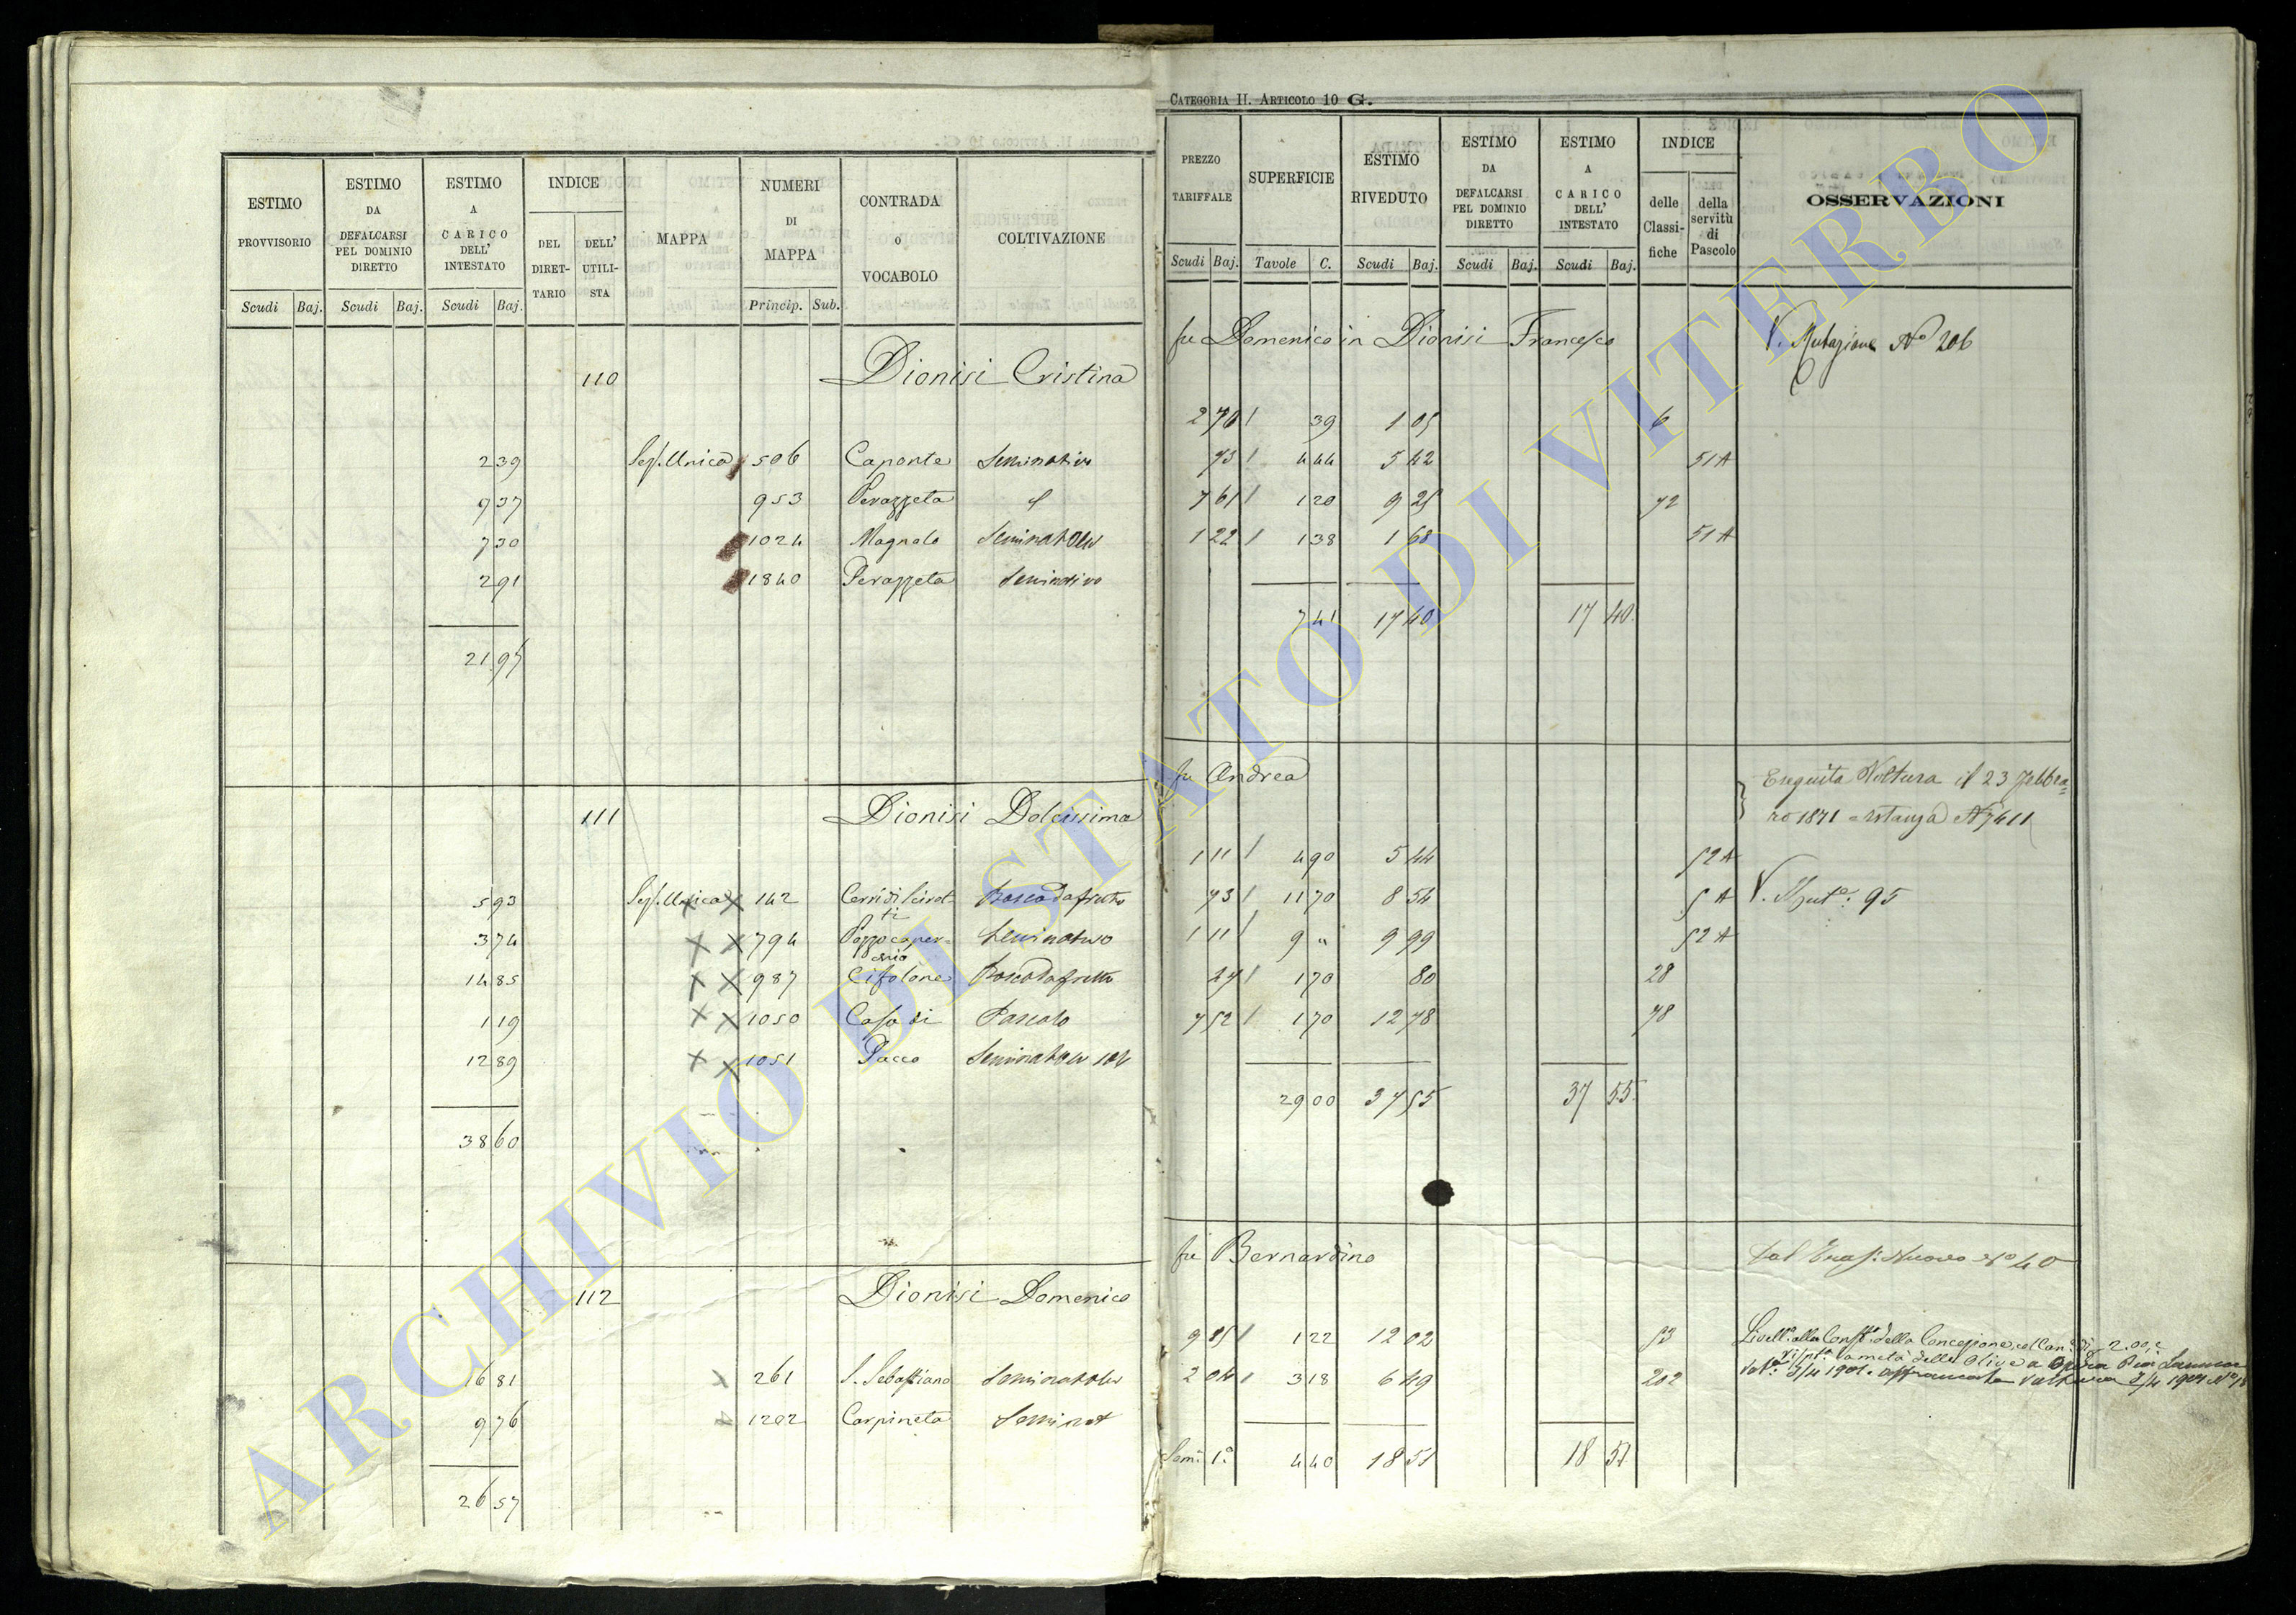 CATEGORIA II. ARTICOLO 10 G.
ESTIMO PROVVISORIO
ESTIMO DA DEFALCARSI PEL DOMINIO DIRETTO
ESTIMO A CARICO DELL' INTESTATO
INDICE
DEL DIRET-TARIO
DELL' UTILI-STA
MAPPA
NUMERI DI MAPPA
CONTRADA O VOCABOLO
COLTIVAZIONE
Scudi Baj. Scudi Baj. Scudi Baj. Princip. Sub.
PREZZO TARIFFALE
SUPERFICIE
ESTIMO RIVEDUTO
ESTIMO DA DEFALCARSI PEL DOMINIO DIRETTO
ESTIMO A CARICO DELL' INTESTATO
INDICE
delle Classi-fiche
della servitù di Pascolo
OSSERVAZIONI
Scudi Baj. Tavole C. Scudi Baj. Scudi Baj. Scudi Baj.
110 Dionisi Cristina
fu Domenico in Dionisi Francesco
V. Mutazione No 206
2 39 Sez. Unica 506 Caponte Seminativo
9 37 953 Perazzeta
7 30 1024 Magnalo Seminat Oliv
2 91 1840 Perazzeta Seminativo
21 97
2 70 39 1 05 6
73 4 44 5 42 51 A
7 61 1 20 9 25 72
1 22 1 38 1 68 51 A
7 41 17 40 17 40
111 Dionisi Dolcissima
fu Andrea
Eseguita Voltura il 23 Febbra=
ro 1871 Istanza N 7411
V. Mut: 95
5 93 Sez. Unica 142 Bosco da frutto
3 74 794 Seminativo
14 85 987 Cifolone Bosco da frutto
1 19 1050 Casa di Pascolo
12 89 1051 Pacco Seminat Oliv
38 60
1 11 4 90 5 44 52 A
73 11 70 8 54 5 A
1 11 9 " 9 99 52 A
47 1 70 80 28
7 52 1 70 12 78 78
29 00 37 55 37 55
112 Dionisi Domenico
fu Bernardino
dal Trasp: Nuovo No 40
16 81 261 S. Sebastiano Seminat Oliv
9 76 1202 Carpineta Seminat
26 57
9 85 1 22 12 02 53
2 04 3 18 6 49 202
4 40 18 51 18 51
della Concezione
la metà delle Olive a Opera Pia
1901. affrancata voltura
ARCHIVIO DI STATO DI VITERBO